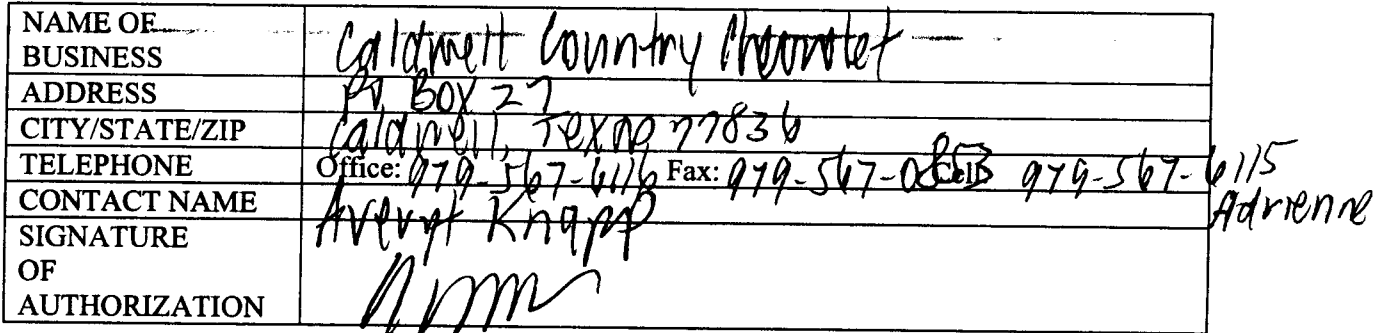 NAME OF
BUSINESS
Caldwell Country Chevrolet
ADDRESS
PO BOX 27
CITY/STATE/ZIP
Caldwell, Texas 77836
TELEPHONE
Office: 979-567-6116 Fax: 979-567-0853 Cell: 979-567-6115
Adrienne
CONTACT NAME
Averyt Knapp
SIGNATURE
OF
AUTHORIZATION